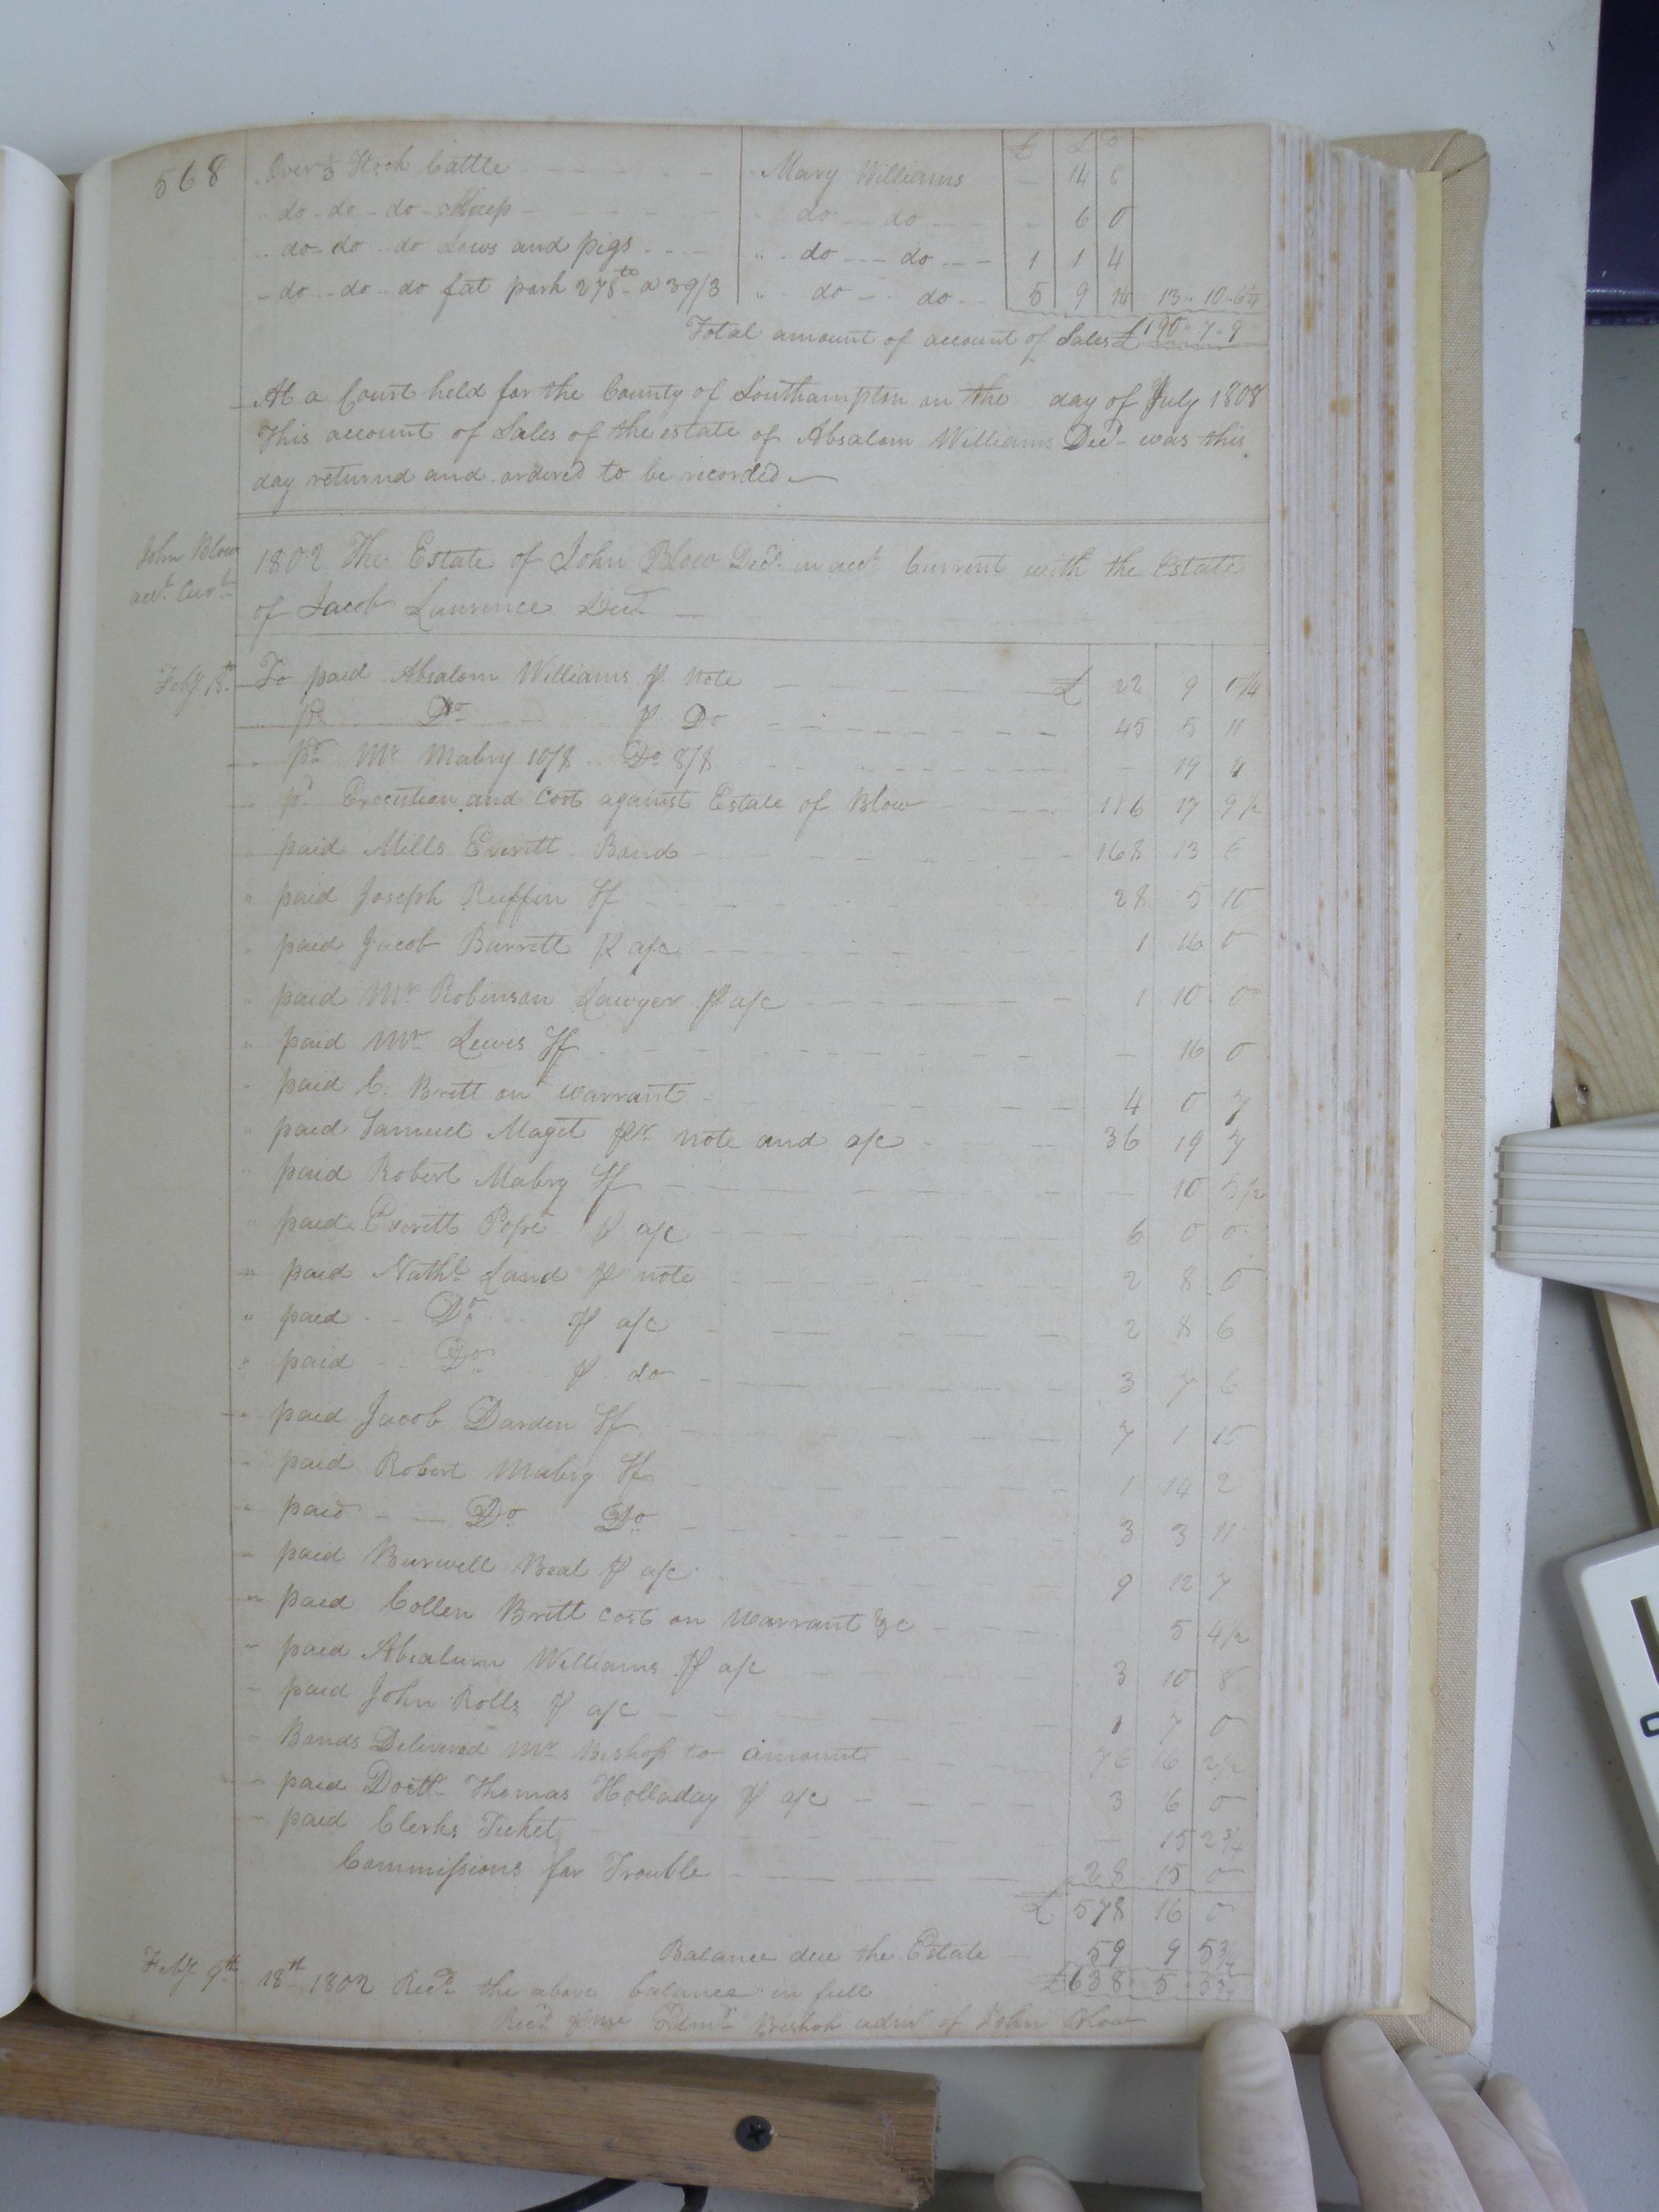 568
£ S D
Over 3 Stock Cattle Mary Williams — 14 8
" do - do - do - Sheep - " do - do - - 6 0
" do - do - do Sows and pigs " do - do - 1 1 4
" do - do - do fat pork 278 to a 39/3 " do - do - 5 9
Total amount of account of Sales £190 " 7 " 9
At a Court held for the County of Southampton on the day of July 1808
This account of Sales of the estate of Absalom Williams Decd. was this
day returnd and ordered to be recorded
John Blow
acct. Curt.
1802 The Estate of John Blow Decd. in acct. Current with the Estate
of Jacob Laurence Decd.
Feby. To paid Absalom Williams P note £ 22 9
pd. Do. P Do 45 5 11
pd. Mr Mabry 10/8 .. Do 8/8 — 19 4
pd. Execution and Cost against Estate of Blow 116 17 9 1/2
paid Mills Everitt Bond 168 13 6
" paid Joseph Ruffin Sf 28 5 10
" paid Jacob Barrett P a/c 1 16 0
" paid Mr Robinson Lawyer P a/c 1 10 0
" paid Mr Lewes Sf — 16 0
" paid C. Britt on warrant 4 0 7
" paid Samuel Maget Pr. note and a/c 36 19 7
" paid Robert Mabry Sf — 10 5 1/2
" paid Everitt Pope P a/c 6 0 0
" paid Nathl. Land P note 2 8 0
" paid - - Do P a/c 2 8 6
" paid - - Do P do 3 7 6
" paid Jacob Darden Sf 7 1 10
" paid Robert Mabry Sf 1 14 2
" paid - - Do. Do. 3 3 11
" paid Burwell Beal P a/c 9 12 7
" paid Collen Britt cost on Warrant &c 5 4 1/2
" paid Absalum Williams P a/c 3 10 8
" paid John Rolls P a/c 1 7 0
" Bonds Delivered Mr Bishop to amount 76 16 2 1/2
" paid Doctr. Thomas Holladay P a/c 3 6 0
" paid Clerks Ticket — 15 2 3/4
Commissions for Trouble 28 15 0
£ 578 16 0
Balance due the Estate 59 9 5 3/4
£638 5 5 3/4
Feby. 9th 18th 1802 Recd. the above balance in full
Recd. P me Edmd. Bishop admr. of John Blow